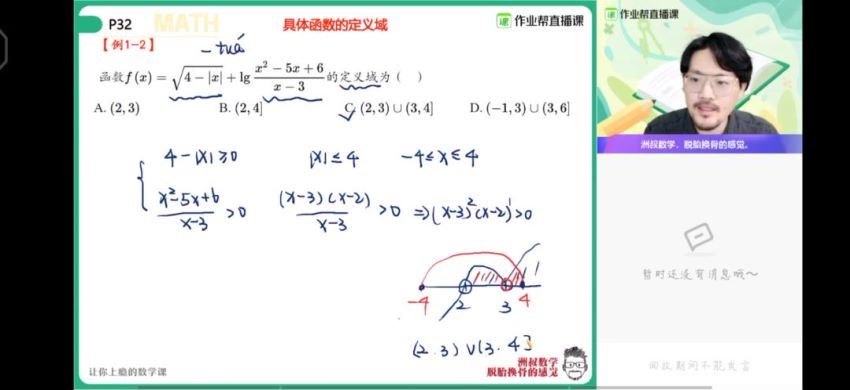 P32
MATH
具体函数的定义域
作业帮直播课
作业帮直播课
【例1-2】
函数 f(x) = √(4 − |x|) + lg (x² − 5x + 6)/(x − 3) 的定义域为（ ）
A. (2, 3) B. (2, 4] C. (2, 3) ∪ (3, 4] D. (−1, 3) ∪ (3, 6]
4 - |x| ≥ 0 |x| ≤ 4 -4 ≤ x ≤ 4
(x²-5x+6)/(x-3) > 0 (x-3)(x-2)/(x-3) > 0 ⇒ (x-3)²(x-2)¹ > 0
-4 2 3 4
(2.3) ∪ (3.4]
让你上瘾的数学课
洲叔数学
脱胎换骨的感觉
洲叔数学，脱胎换骨的感觉。
暂时还没有消息哦～
回放期间不能发言